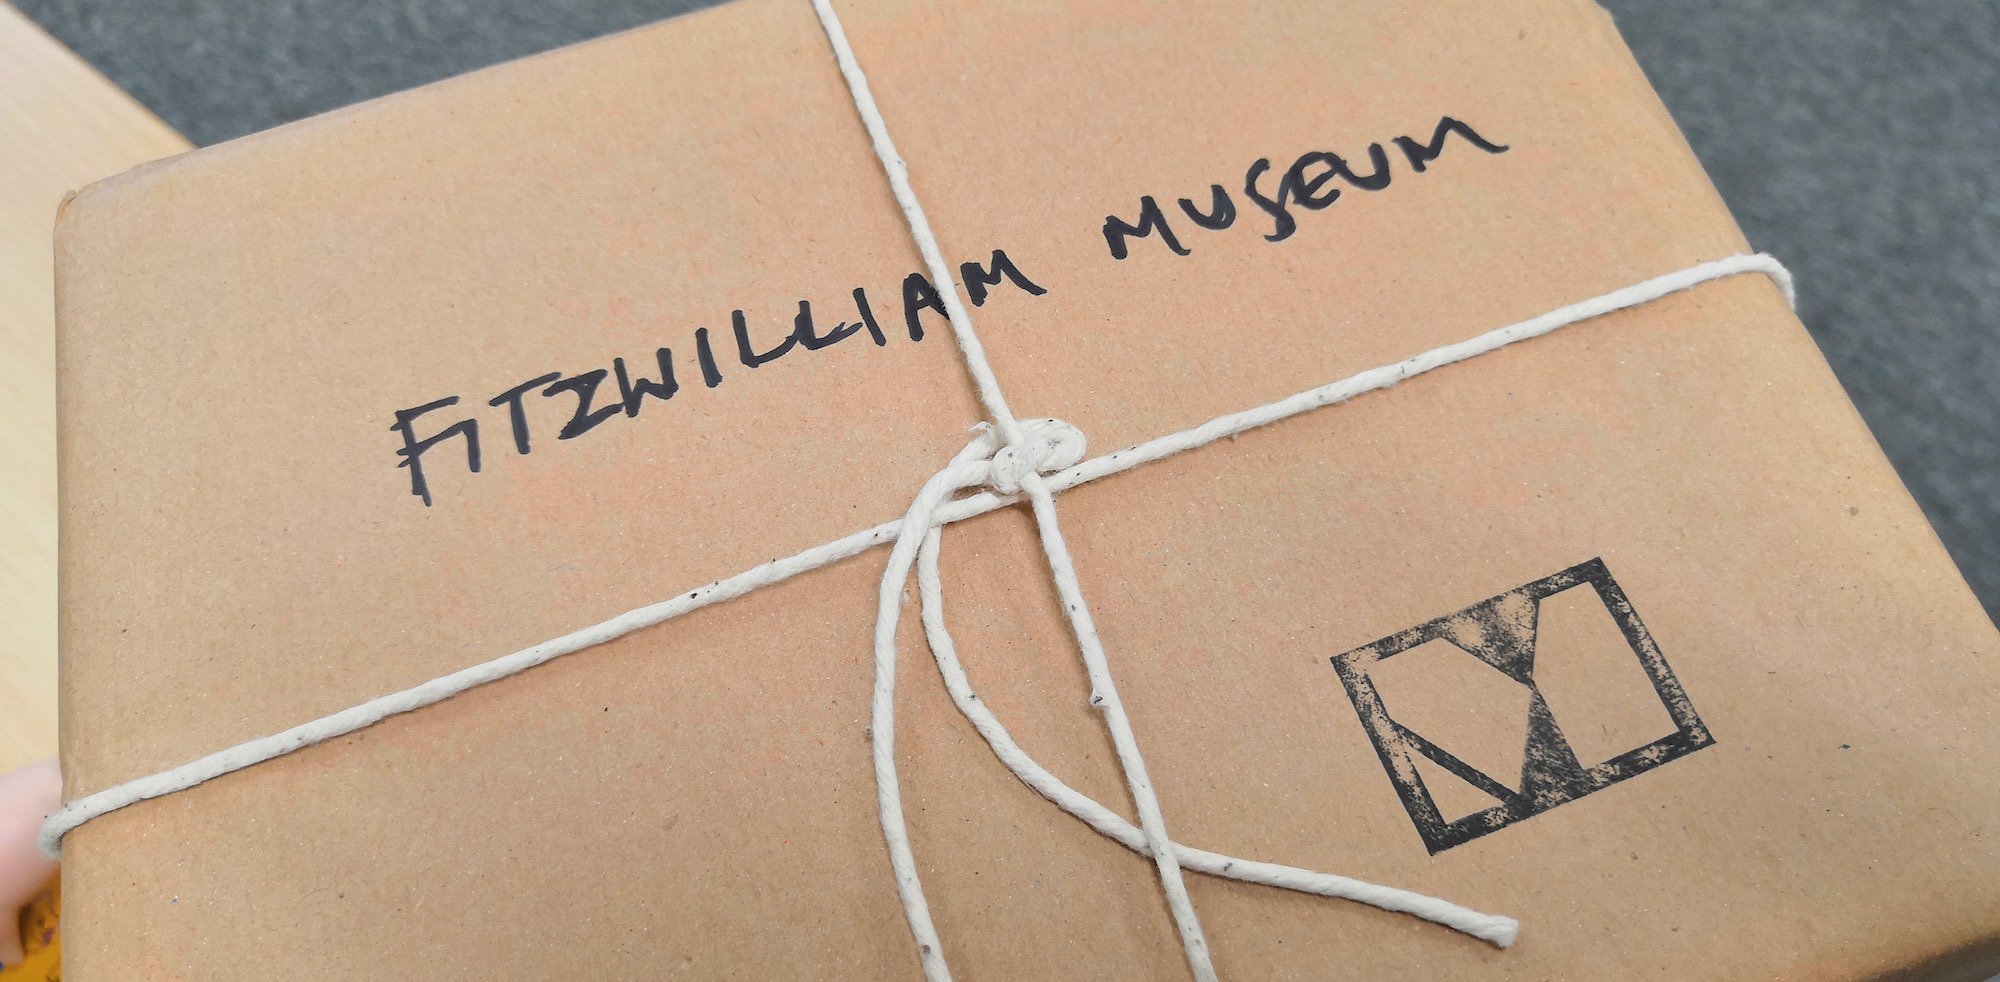 FITZWILLIAM MUSEUM